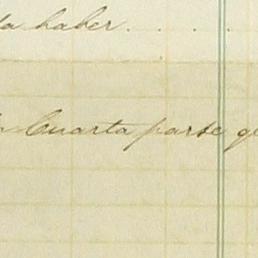 da haber....
la Cuarta parte q